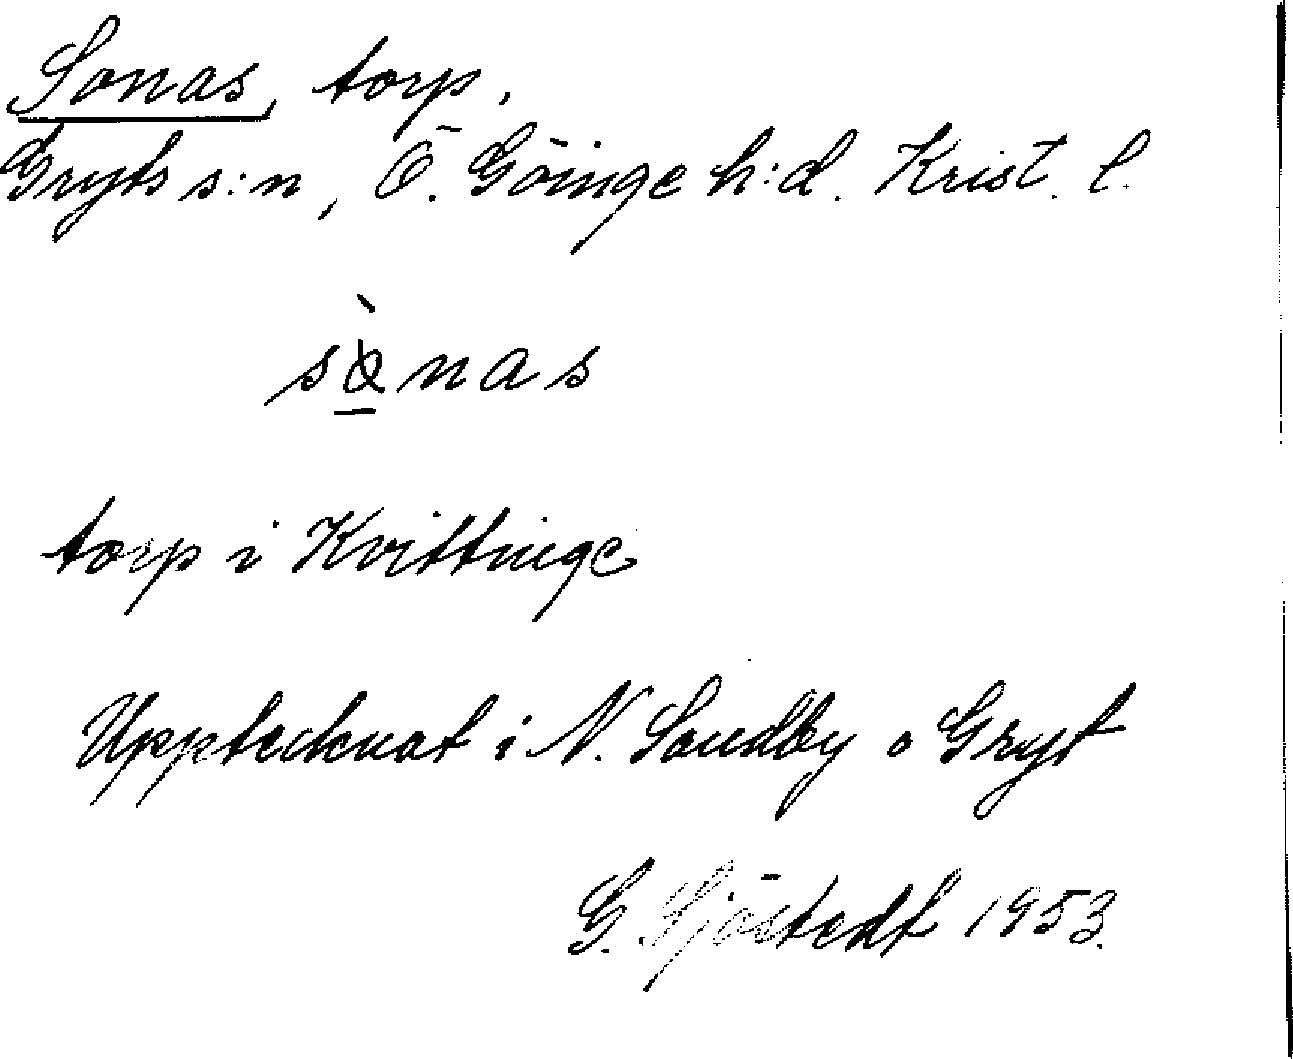 Sonas, torp.
Gryts s:n, Ö. Göinge h:d. Krist. l.
torp i Kvittinge
Upptecknat i N. Sandby o Gryt
G. Sjöstedt 1953.